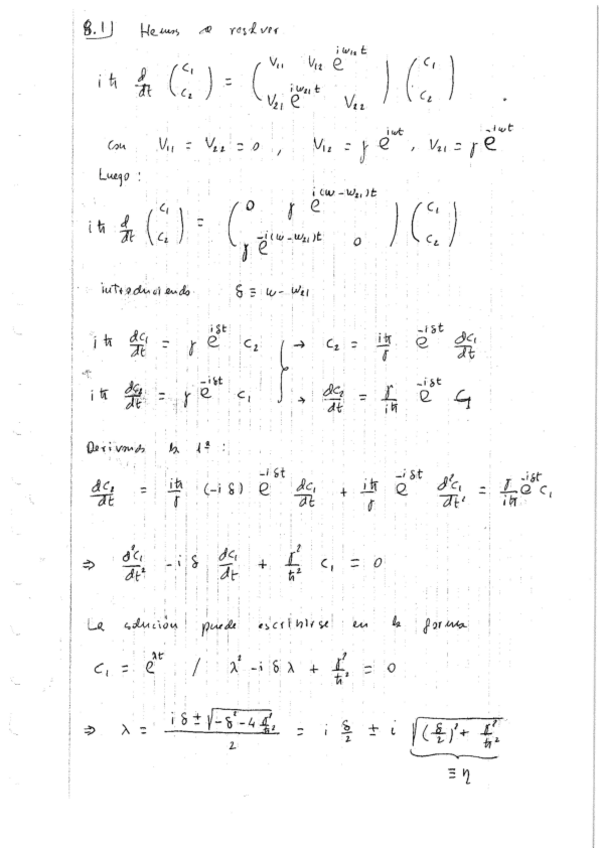 8.1) Hemos de resolver
iħ d/dt (c₁ c₂) = (V₁₁ V₁₂ e^{iω₁₂t} V₂₁ e^{iω₂₁t} V₂₂) (c₁ c₂)
con V₁₁ = V₂₂ = 0 , V₁₂ = γ e^{iωt} , V₂₁ = γ e^{-iωt}
Luego :
iħ d/dt (c₁ c₂) = (0 γ e^{i(ω-ω₂₁)t} γ e^{-i(ω-ω₂₁)t} 0) (c₁ c₂)
introduciendo δ ≡ ω - ω₂₁
iħ dc₁/dt = γ e^{iδt} c₂ } → c₂ = iħ/γ e^{-iδt} dc₁/dt
iħ dc₂/dt = γ e^{-iδt} c₁ } → dc₂/dt = γ/iħ e^{-iδt} c₁
Derivando la 1ª :
dc₂/dt = iħ/γ (-iδ) e^{-iδt} dc₁/dt + iħ/γ e^{-iδt} d²c₁/dt² = γ/iħ e^{-iδt} c₁
⇒ d²c₁/dt² - iδ dc₁/dt + γ²/ħ² c₁ = 0
La solución puede escribirse en la forma
c₁ = e^{λt} / λ² - iδλ + γ²/ħ² = 0
⇒ λ = (iδ ± √(-δ² - 4γ²/ħ²))/2 = i δ/2 ± i √((δ/2)² + γ²/ħ²)
≡ η